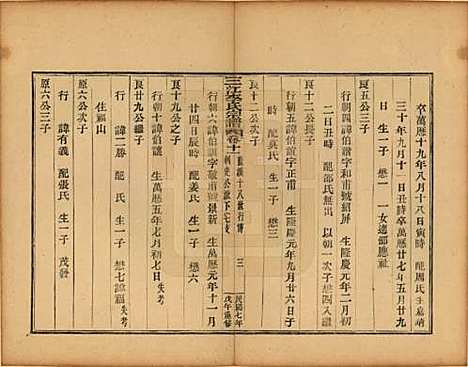 卒萬曆十九年八月十八日寅時 配周氏生嘉靖
三十年九月十一日丑時卒萬曆廿七年五月廿九
日 生一子 懋一 一女適鄒應祉
良五公三子
行朝四諱伯讓字和甫號紹屏 生隆慶元年二月初
二日丑時 配邵氏無出 以朝一次子懋四入繼
良十二公長子
行朝五諱伯誼字正甫 生隆慶元年九月廿六日子
時 配莫氏 生一子 懋三
良十二公次子
三江李氏宗譜 卷十一 藍溪十八世行傳 朝光公派下七支 三 民國七年戊午重修
行朝六諱伯誠字敬甫號景新 生萬曆元年十一月
廿四日辰時 配姜氏 生一子 懋六
良十九公之子
行朝十諱伯陵 生萬曆五年七月初七日 失考
良廿九公繼子
行 諱二勝 配氏 生二子 懋七諱福 失考
住福山
原六公次子
行 諱有義 配張氏 生一子 茂發
原六公三子